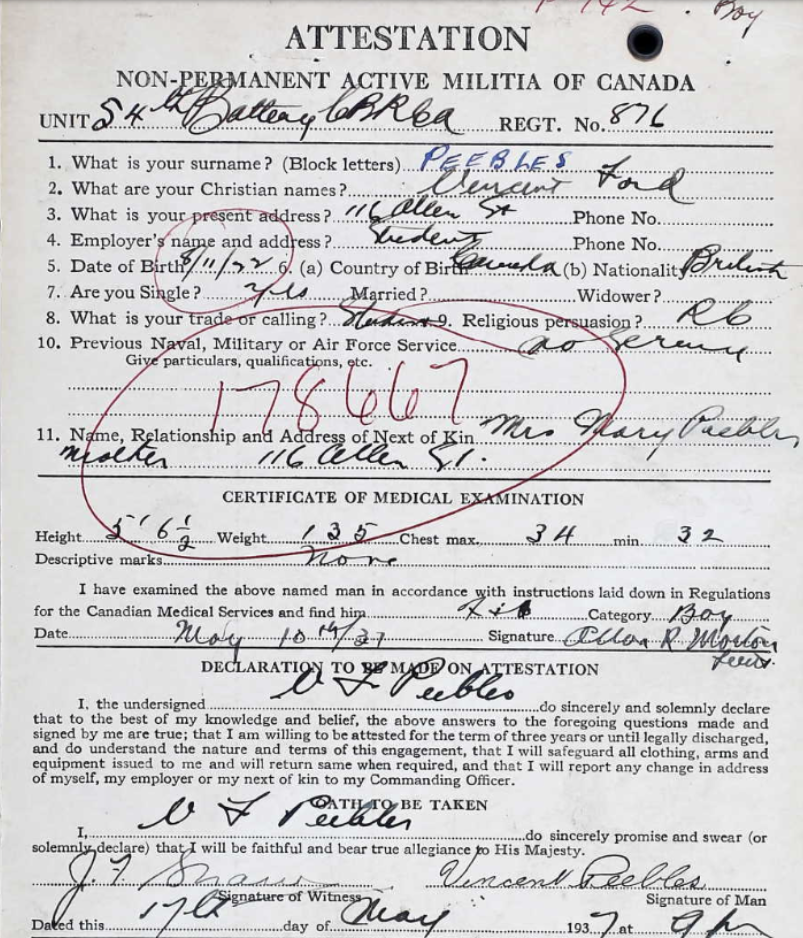 Boy
ATTESTATION
NON-PERMANENT ACTIVE MILITIA OF CANADA
UNIT 54th Battery CBRCA REGT. No. 876
1. What is your surname? (Block letters) PEEBLES
2. What are your Christian names? Vincent Ford
3. What is your present address? 116 Allen St Phone No.
4. Employer's name and address? Student Phone No.
5. Date of Birth 8/11/22 6. (a) Country of Birth Canada (b) Nationality British
7. Are you Single? yes Married? Widower?
8. What is your trade or calling? Student 9. Religious persuasion? RC
10. Previous Naval, Military or Air Force Service no Service
Give particulars, qualifications, etc.
178667
11. Name, Relationship and Address of Next of Kin Mrs Mary Peebles
mother 116 Allen St.
CERTIFICATE OF MEDICAL EXAMINATION
Height 5' 6 1/2 Weight 135 Chest max. 34 min. 32
Descriptive marks none
I have examined the above named man in accordance with instructions laid down in Regulations
for the Canadian Medical Services and find him Fit Category Boy
Date May 10th/37 Signature Allan R Morton
Lieut.
DECLARATION TO BE MADE ON ATTESTATION
I, the undersigned V F Peebles do sincerely and solemnly declare
that to the best of my knowledge and belief, the above answers to the foregoing questions made and
signed by me are true; that I am willing to be attested for the term of three years or until legally discharged,
and do understand the nature and terms of this engagement, that I will safeguard all clothing, arms and
equipment issued to me and will return same when required, and that I will report any change in address
of myself, my employer or my next of kin to my Commanding Officer.
OATH TO BE TAKEN
I, V F Peebles do sincerely promise and swear (or
solemnly declare) that I will be faithful and bear true allegiance to His Majesty.
J. F. Vincent Peebles
Signature of Witness Signature of Man
Dated this 17th day of May 1937 at 9 pm